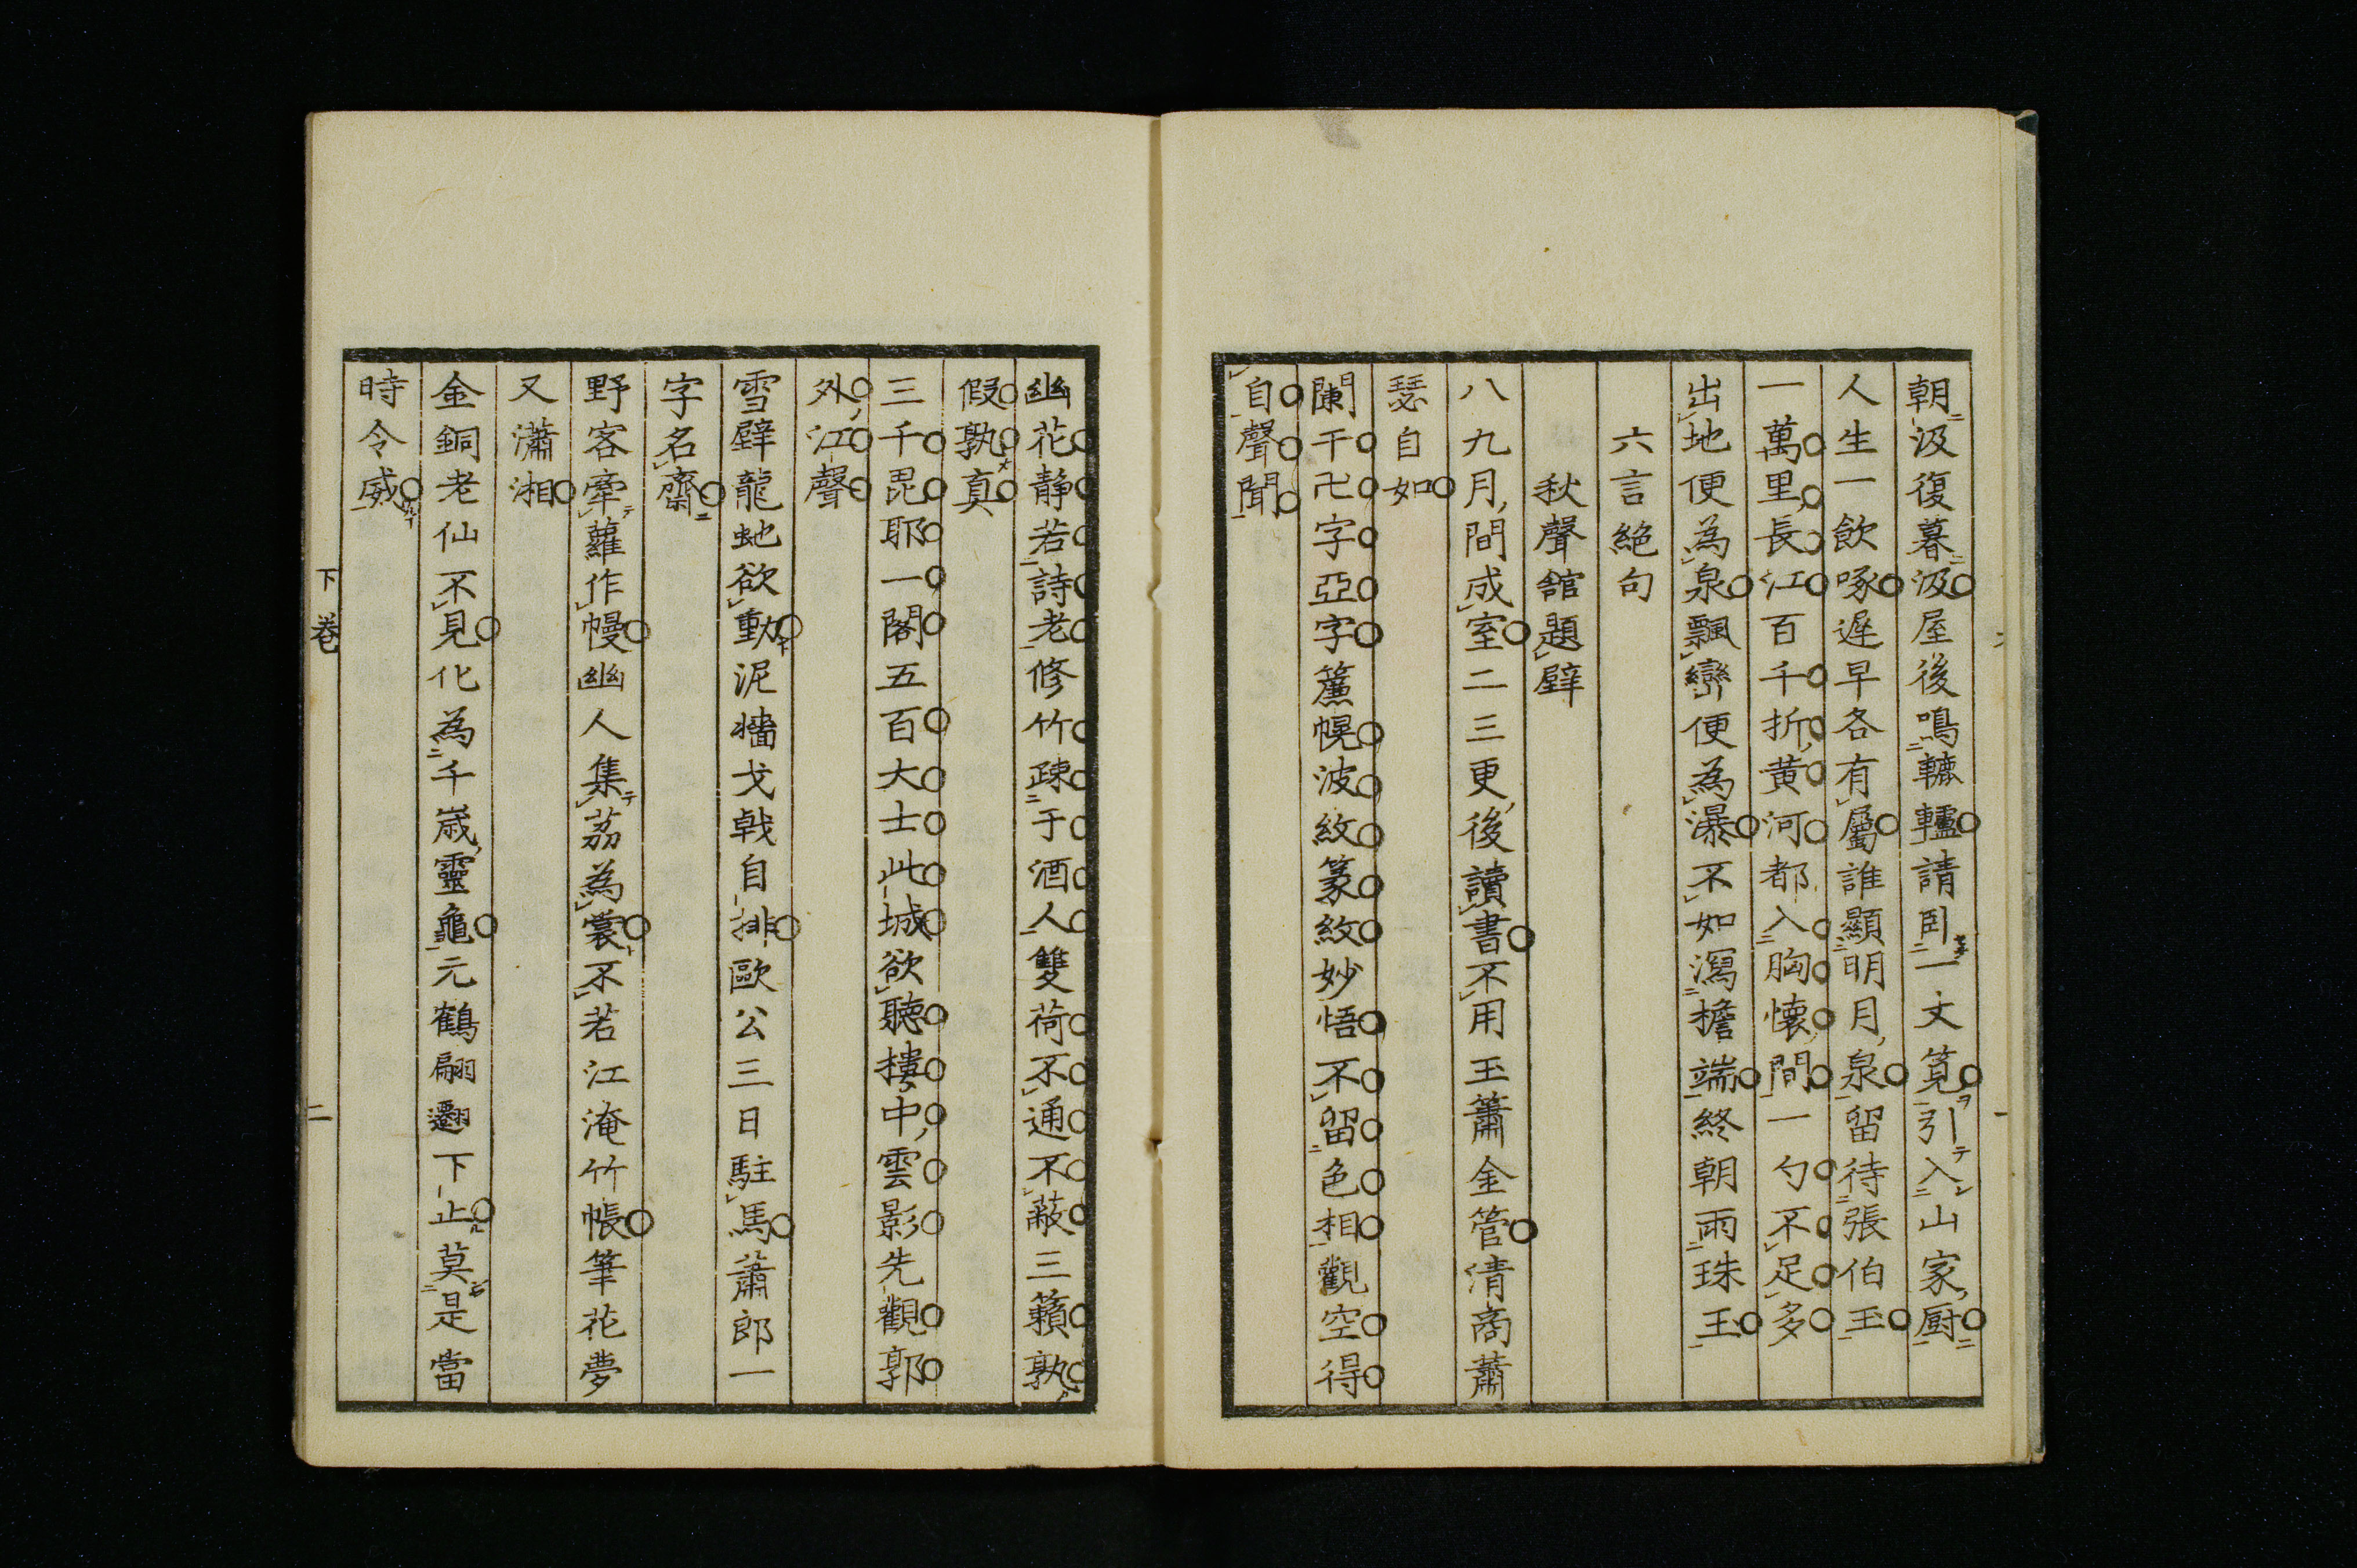 朝汲復暮汲屋後鳴轆轤請臥一丈筧引入山家厨
人生一飲啄遲早各有屬誰顯明月泉留待張伯玉
一萬里長江百千折黄河都入胸懷間一勺不足多
出地便為泉飄巒便為瀑不如瀉檐端終朝雨珠玉
六言絶句
秋聲舘題壁
八九月間成室二三更後讀書不用玉簫金管清商蕭
瑟自如
闌干卍字亞字簾幌波紋篆紋妙悟不留色相觀空得
自聲聞
幽花靜若詩老修竹疎于酒人雙荷不通不蔽三籟孰
假孰真
三千毘耶一閣五百大士此城欲聽樓中雲影先觀郭
外江聲
雪壁龍虵欲動泥牆戈戟自排歐公三日駐馬蕭郎一
字名齋
野客牽蘿作幔幽人集荔為裳不若江淹竹帳筆花夢
又瀟湘
金銅老仙不見化為千嵗靈龜元鶴翩翾下止莫是當
時令威
下卷
二